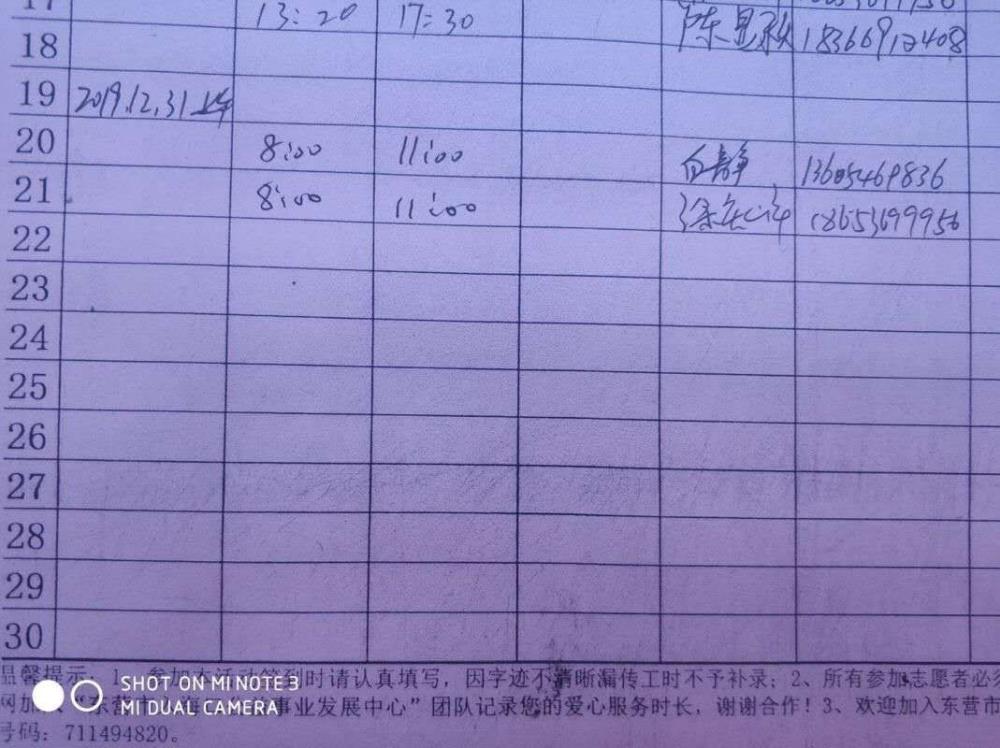 17
13:20 17:30
18 陈显秋 18366912408
19 2019.12.31上午
20 8:00 11:00 白静 13605469836
21 8:00 11:00 18653699956
22
23
24
25
26
27
28
29
30
温馨提示 1、参加本活动签到时请认真填写，因字迹不清晰漏传工时不予补录；2、所有参加志愿者必须
网加 “东营市 事业发展中心”团队记录您的爱心服务时长，谢谢合作！3、欢迎加入东营市
号码：711494820。
SHOT ON MI NOTE 3
MI DUAL CAMERA